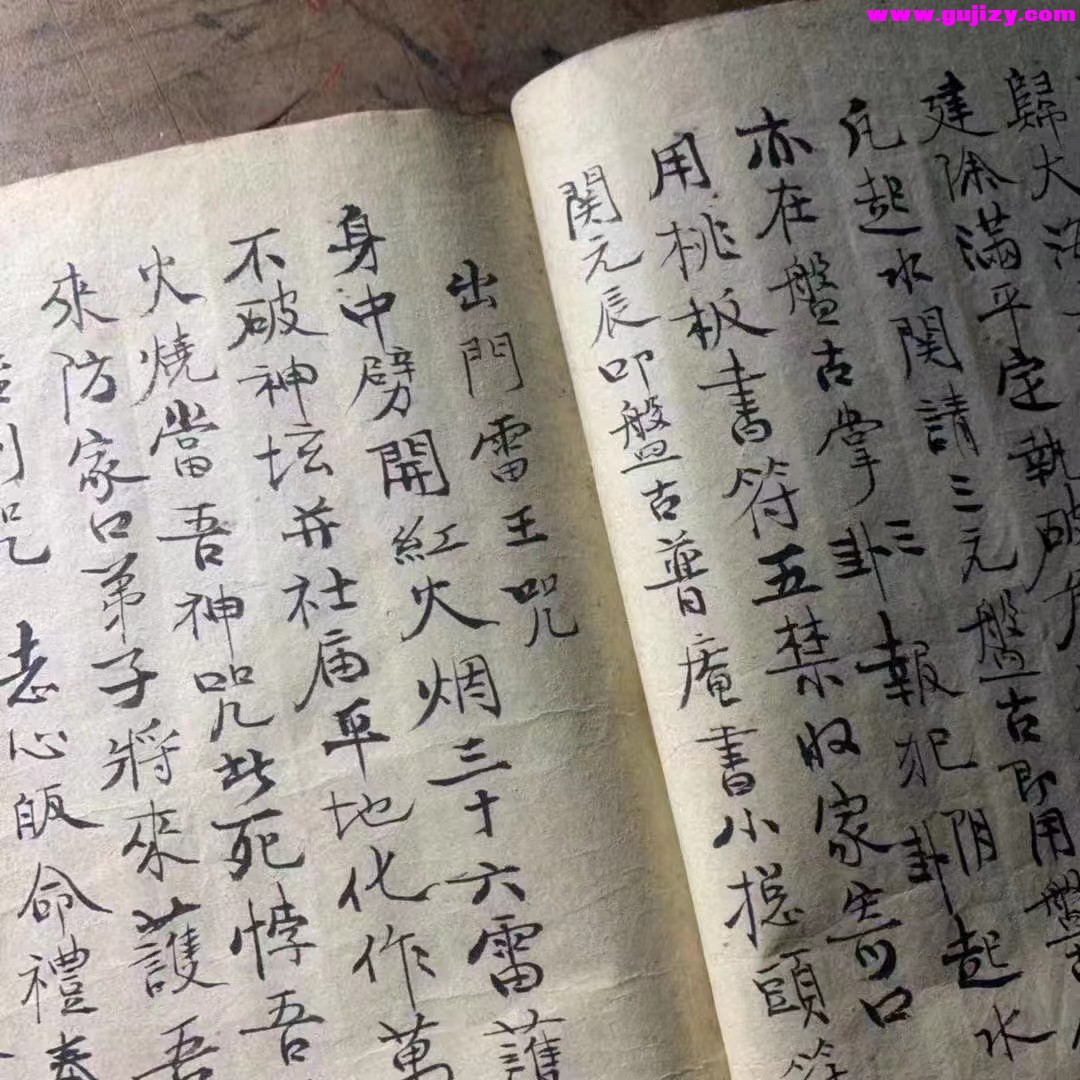 www.gujizy.com
歸大海
建除滿平定執破危
凡起水関請三元盤古即用盤古
亦在盤古掌三卦報犯卦阴起水
用桃板書符五禁收家吉口
関元辰叩盤古普庵書小摁頭符
出門雷王咒
身中劈開紅火烟三十六雷護
不破神坛并社庙平地化作萬
火燒當吾神咒此死悖吾
來防家口弟子將來護吾
咒 志心皈命禮奉